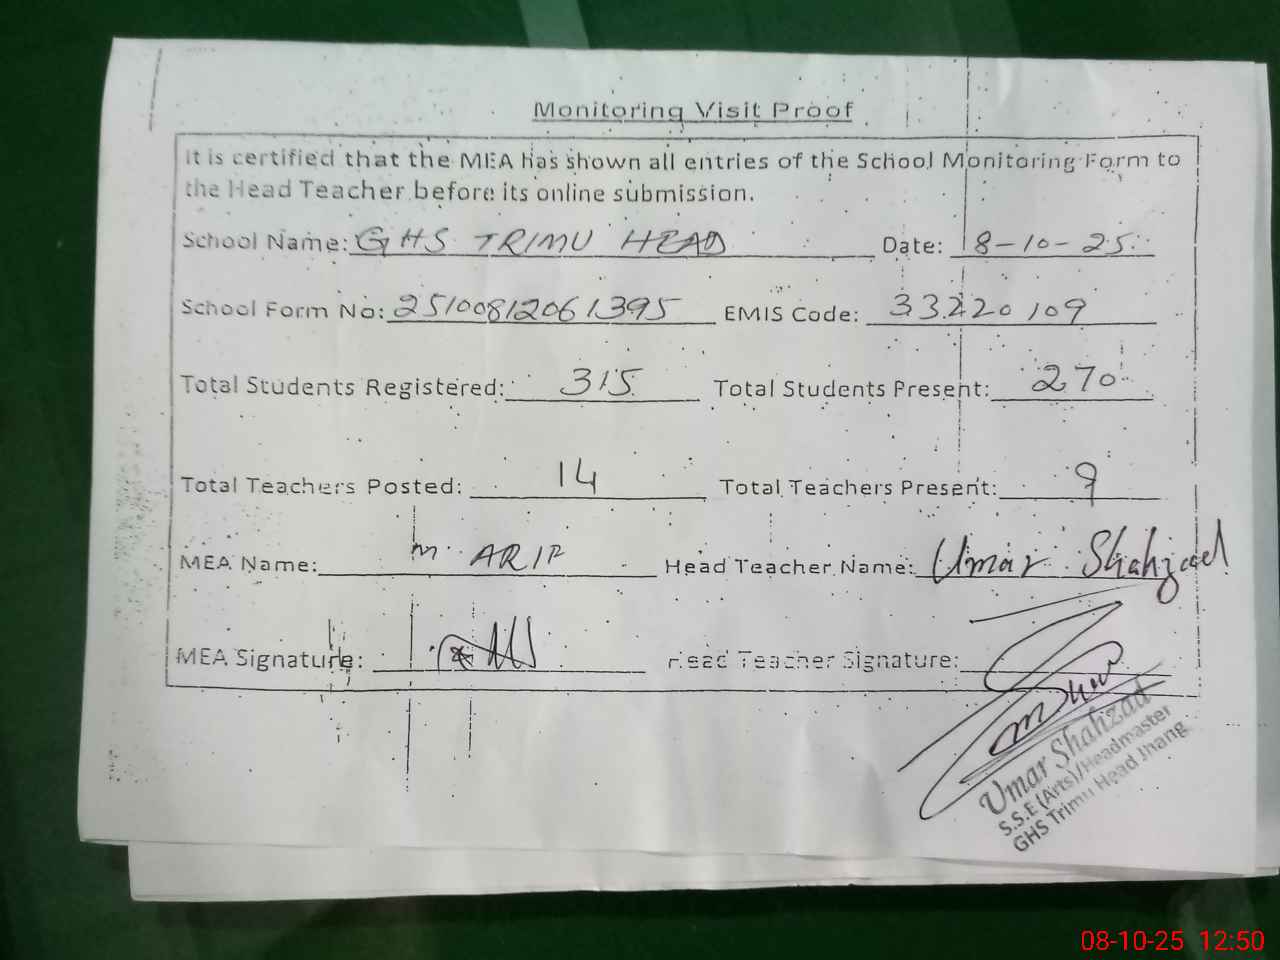 Monitoring Visit Proof
It is certified that the MEA has shown all entries of the School Monitoring Form to
the Head Teacher before its online submission.
School Name: GHS TRIMU HEAD Date: 8-10-25
School Form No: 25100812061395 EMIS Code: 33220109
Total Students Registered: 315 Total Students Present: 270
Total Teachers Posted: 14 Total Teachers Present: 9
MEA Name: M. ARIF Head Teacher Name: Umar Shahzad
MEA Signature: Head Teacher Signature:
Umar Shahzad
S.S.E (Arts)/Headmaster
GHS Trimu Head Jhang
08-10-25 12:50